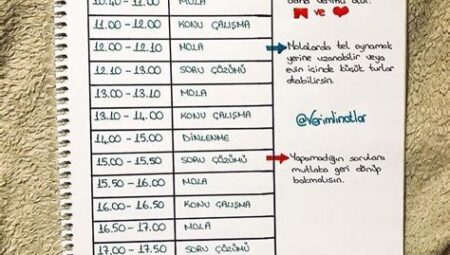 10.40 - 11.00 MOLA
11.00 - 12.00 KONU ÇALIŞMA
12.00 - 12.10 MOLA
12.10 - 13.00 SORU ÇÖZÜMÜ
13.00 - 13.10 MOLA
13.10 - 14.00 KONU ÇALIŞMA
14.00 - 15.00 DİNLENME
15.00 - 15.50 SORU ÇÖZÜMÜ
15.50 - 16.00 MOLA
16.00 - 16.50 KONU ÇALIŞMA
16.50 - 17.00 MOLA
17.00 - 17.50 SORU ÇÖZÜMÜ
daha verimli olur.
ve
Molalarda tel oynamak
yerine uzanabilir veya
evin içinde küçük turlar
atabilirsin.
@verimlinotlar
Yapamadığın sorulara
mutlaka geri dönüp
bakmalısın.